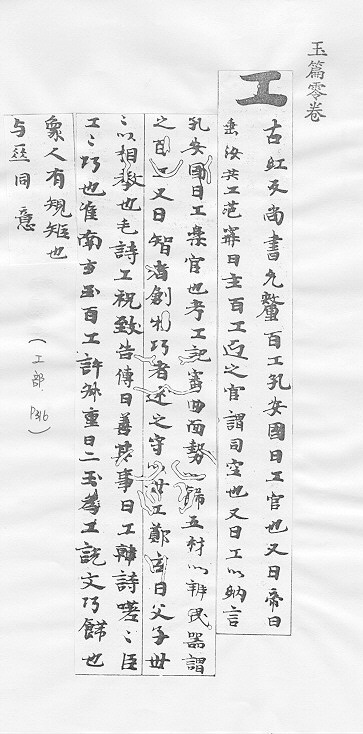 玉篇零卷
工
古紅反尚書允釐百工孔安國曰工官也又曰帝曰
垂汝共工范甯曰主百工之官謂司空也又曰工以納言
孔安國曰工樂官也考工記審曲面勢飾五材以辨民器謂
之百工又曰智者創物巧者述之守世工鄭玄曰父子世
以相教也毛詩工祝致告傳曰善其事曰工韓詩嗟嗟臣
工工巧也淮南玄玉百工許叔重曰二玉為工說文巧餝也
象人有規矩也
与巫同意
(工部 P316)